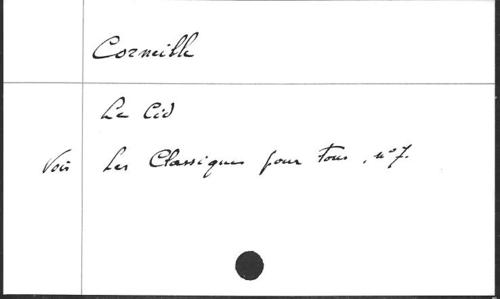 Corneille
Le Cid
Voir Les Classiques pour Tous, n° 7.